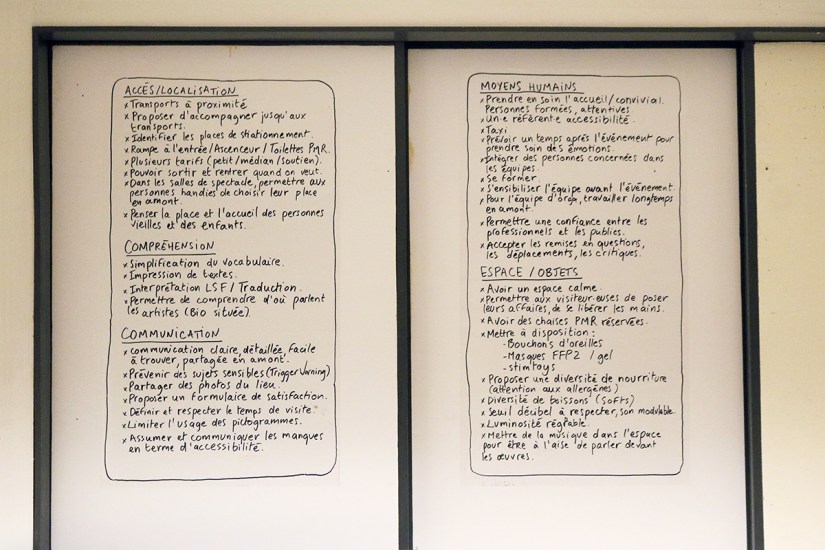 ACCÈS/LOCALISATION
x Transports à proximité
x Proposer d'accompagner jusqu'aux
transports.
x Identifier les places de stationnement.
x Rampe à l'entrée/Ascenceur / Toilettes PMR.
x Plusieurs tarifs (petit/médian/soutien).
x Pouvoir sortir et rentrer quand on veut.
x Dans les salles de spectacle, permettre aux
personnes handies de choisir leur place
en amont.
x Penser la place et l'accueil des personnes
vieilles et des enfants.
COMPRÉHENSION
x Simplification du vocabulaire.
x Impression de textes.
x Interprétation LSF / Traduction.
x Permettre de comprendre d'où parlent
les artistes (Bio située).
COMMUNICATION
x communication claire, détaillée, facile
à trouver, partagée en amont.
x Prévenir des sujets sensibles (Trigger Warning)
x Partager des photos du lieu.
x Proposer un formulaire de satisfaction.
x Définir et respecter le temps de visite.
x Limiter l'usage des pictogrammes.
x Assumer et communiquer les manques
en terme d'accessibilité.
MOYENS HUMAINS
x Prendre en soin l'accueil/convivial.
Personnes formées, attentives
x Un·e référent·e accessibilité.
x Taxi
x Prévoir un temps après l'événement pour
prendre soin des émotions.
x Intégrer des personnes concernées dans
les équipes.
x Se former.
x S'ensibiliser l'équipe avant l'événement.
x Pour l'équipe d'orga, travailler longtemps
en amont.
x Permettre une confiance entre les
professionnels et les publics.
x Accepter les remises en questions,
les déplacements, les critiques.
ESPACE / OBJETS
x Avoir un espace calme.
x Permettre aux visiteur·euses de poser
leurs affaires, de se libérer les mains.
x Avoir des chaises PMR réservées.
x Mettre à disposition :
- Bouchons d'oreilles
- Masques FFP2 / gel
- stimtoys
x Proposer une diversité de nourriture
(attention aux allergènes)
x Diversité de boissons (softs)
x Seuil décibel à respecter, son modulable.
x Luminosité réglable.
x Mettre de la musique dans l'espace
pour être à l'aise de parler devant
les œuvres.